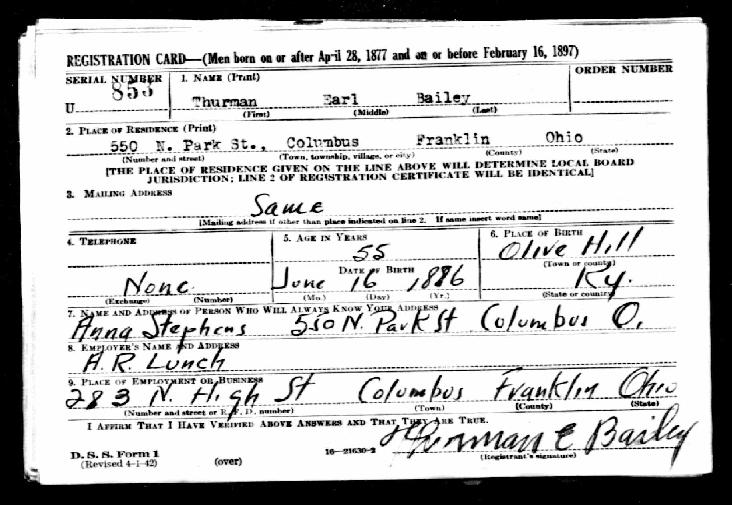 REGISTRATION CARD—(Men born on or after April 28, 1877 and on or before February 16, 1897)
SERIAL NUMBER 1. NAME (Print) ORDER NUMBER
U 853 Thurman Earl Bailey
(First) (Middle) (Last)
2. PLACE OF RESIDENCE (Print)
550 N. Park St., Columbus Franklin Ohio
(Number and street) (Town, township, village, or city) (County) (State)
[THE PLACE OF RESIDENCE GIVEN ON THE LINE ABOVE WILL DETERMINE LOCAL BOARD
JURISDICTION; LINE 2 OF REGISTRATION CERTIFICATE WILL BE IDENTICAL]
3. MAILING ADDRESS
Same
[Mailing address if other than place indicated on line 2. If same insert word same]
4. TELEPHONE 5. AGE IN YEARS 6. PLACE OF BIRTH
55 Olive Hill
DATE OF BIRTH (Town or county)
None June 16 1886 Ky.
(Exchange) (Number) (Mo.) (Day) (Yr.) (State or country)
7. NAME AND ADDRESS OF PERSON WHO WILL ALWAYS KNOW YOUR ADDRESS
Anna Stephens 550 N. Park St Columbus O.
8. EMPLOYER'S NAME AND ADDRESS
A. R. Lunch
9. PLACE OF EMPLOYMENT OR BUSINESS
283 N. High St Columbus Franklin Ohio
(Number and street or R. F. D. number) (Town) (County) (State)
I AFFIRM THAT I HAVE VERIFIED ABOVE ANSWERS AND THAT THEY ARE TRUE.
Thurman E Bailey
D. S. S. Form 1 16—21630-2 (Registrant's signature)
(Revised 4-1-42) (over)